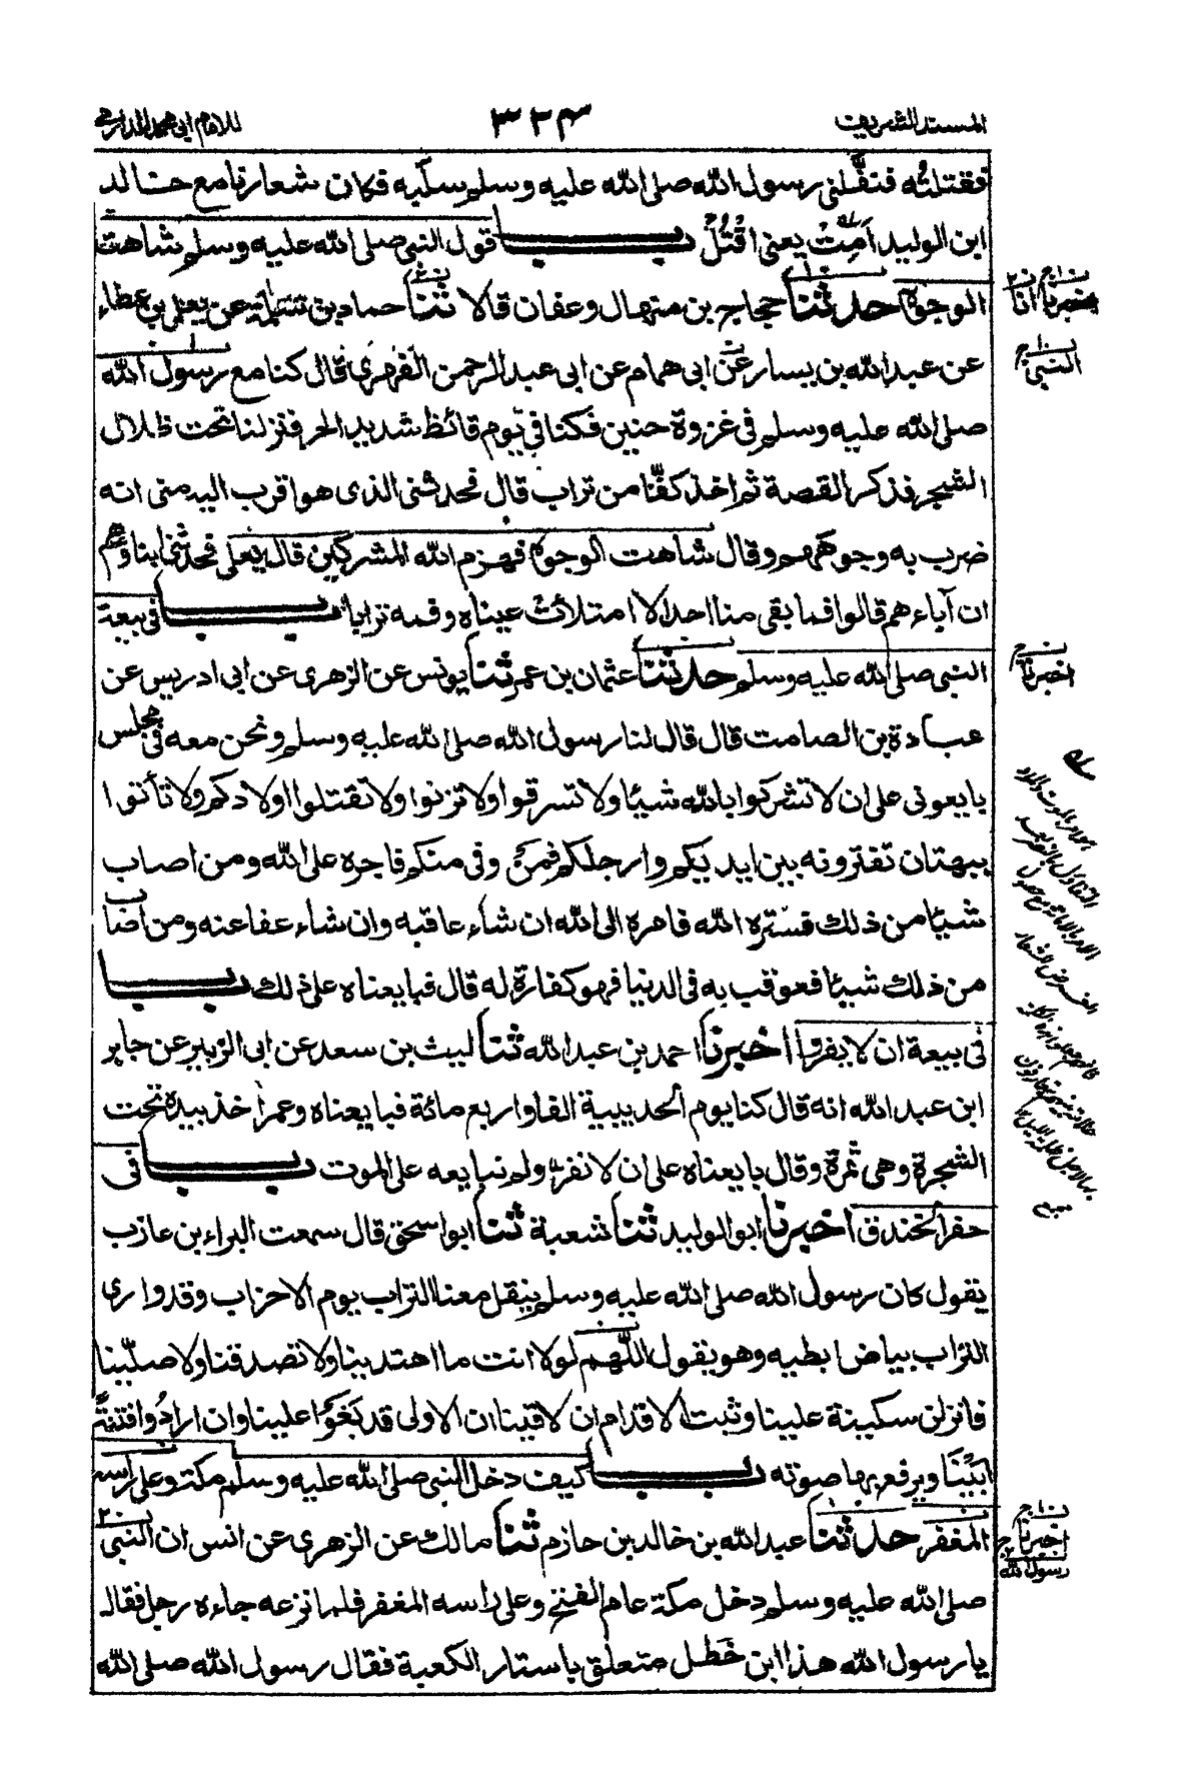 المسند الشريف
٣٢٤
للامام ابی محمد الدارمی
فقتلته فنفّلنی رسول الله صلی الله علیه وسلم سلبه فکان شعارنا مع خالد
ابن الولید اَمِتْ یعنی اقْتُلْ باب قول النبی صلی الله علیه وسلم شاهت
الوجوه حدثنا حجاج بن منهال وعفان قالا ثنا حماد بن سلمة عن یعلی بن عطاء
عن عبد الله بن یسار عن ابی همام عن ابی عبد الرحمن الفهری قال کنا مع رسول الله
صلی الله علیه وسلم فی غزوة حنین فکنا فی یوم قائظ شدید الحر فنزلنا تحت ظلال
الشجر فذکر القصة ثم اخذ کفّا من تراب قال فحدثنی الذی هو اقرب الیه منی انه
ضرب به وجوههم وقال شاهت الوجوه فهزم الله المشرکین قال یعلی فحدثنی ابناؤهم
ان آباءهم قالوا فما بقی منا احد الا امتلأت عیناه وفمه ترابا باب فی بیعة
النبی صلی الله علیه وسلم حدثنا عثمان بن عمر ثنا یونس عن الزهری عن ابی ادریس عن
عبادة بن الصامت قال قال لنا رسول الله صلی الله علیه وسلم ونحن معه فی مجلس
بایعونی علی ان لا تشرکوا بالله شیئا ولا تسرقوا ولا تزنوا ولا تقتلوا اولادکم ولا تأتوا
ببهتان تفترونه بین ایدیکم وارجلکم فمن وفی منکم فاجره علی الله ومن اصاب
شیئا من ذلك فستره الله فامره الی الله ان شاء عاقبه وان شاء عفا عنه ومن اصاب
من ذلك شیئا فعوقب به فی الدنیا فهو کفارة له قال فبایعناه علی ذلك باب
فی بیعة ان لا یفروا اخبرنا احمد بن عبد الله ثنا لیث بن سعد عن ابی الزبیر عن جابر
ابن عبد الله انه قال کنا یوم الحدیبیة الفا واربع مائة فبایعناه وعمر اخذ بیده تحت
الشجرة وهی ثمرة وقال بایعناه علی ان لا نفر ولم نبایعه علی الموت باب فی
حفر الخندق اخبرنا ابو الولید ثنا شعبة ثنا ابو اسحق قال سمعت البراء بن عازب
یقول کان رسول الله صلی الله علیه وسلم ینقل معنا التراب یوم الاحزاب وقد واری
التراب بیاض ابطیه وهو یقول اللّٰهم لولا انت ما اهتدینا ولا تصدقنا ولا صلّینا
فانزلن سکینة علینا وثبت الاقدام ان لاقینا ان الاولی قد بَغَوْا علینا وان ارادُوا فتنةً
ابَیْنَا ویرفع بها صوته باب کیف دخل النبی صلی الله علیه وسلم مکة وعلی راسه
المغفر حدثنا عبد الله بن خالد بن حازم ثنا مالك عن الزهری عن انس ان النبی
صلی الله علیه وسلم دخل مکة عام الفتح وعلی راسه المغفر فلما نزعه جاءه رجل فقال
یا رسول الله هذا ابن خَطَل متعلق باستار الکعبة فقال رسول الله صلی الله
اخبرنا انا
النبی
اخبرنا
اخبرنا
رسول الله